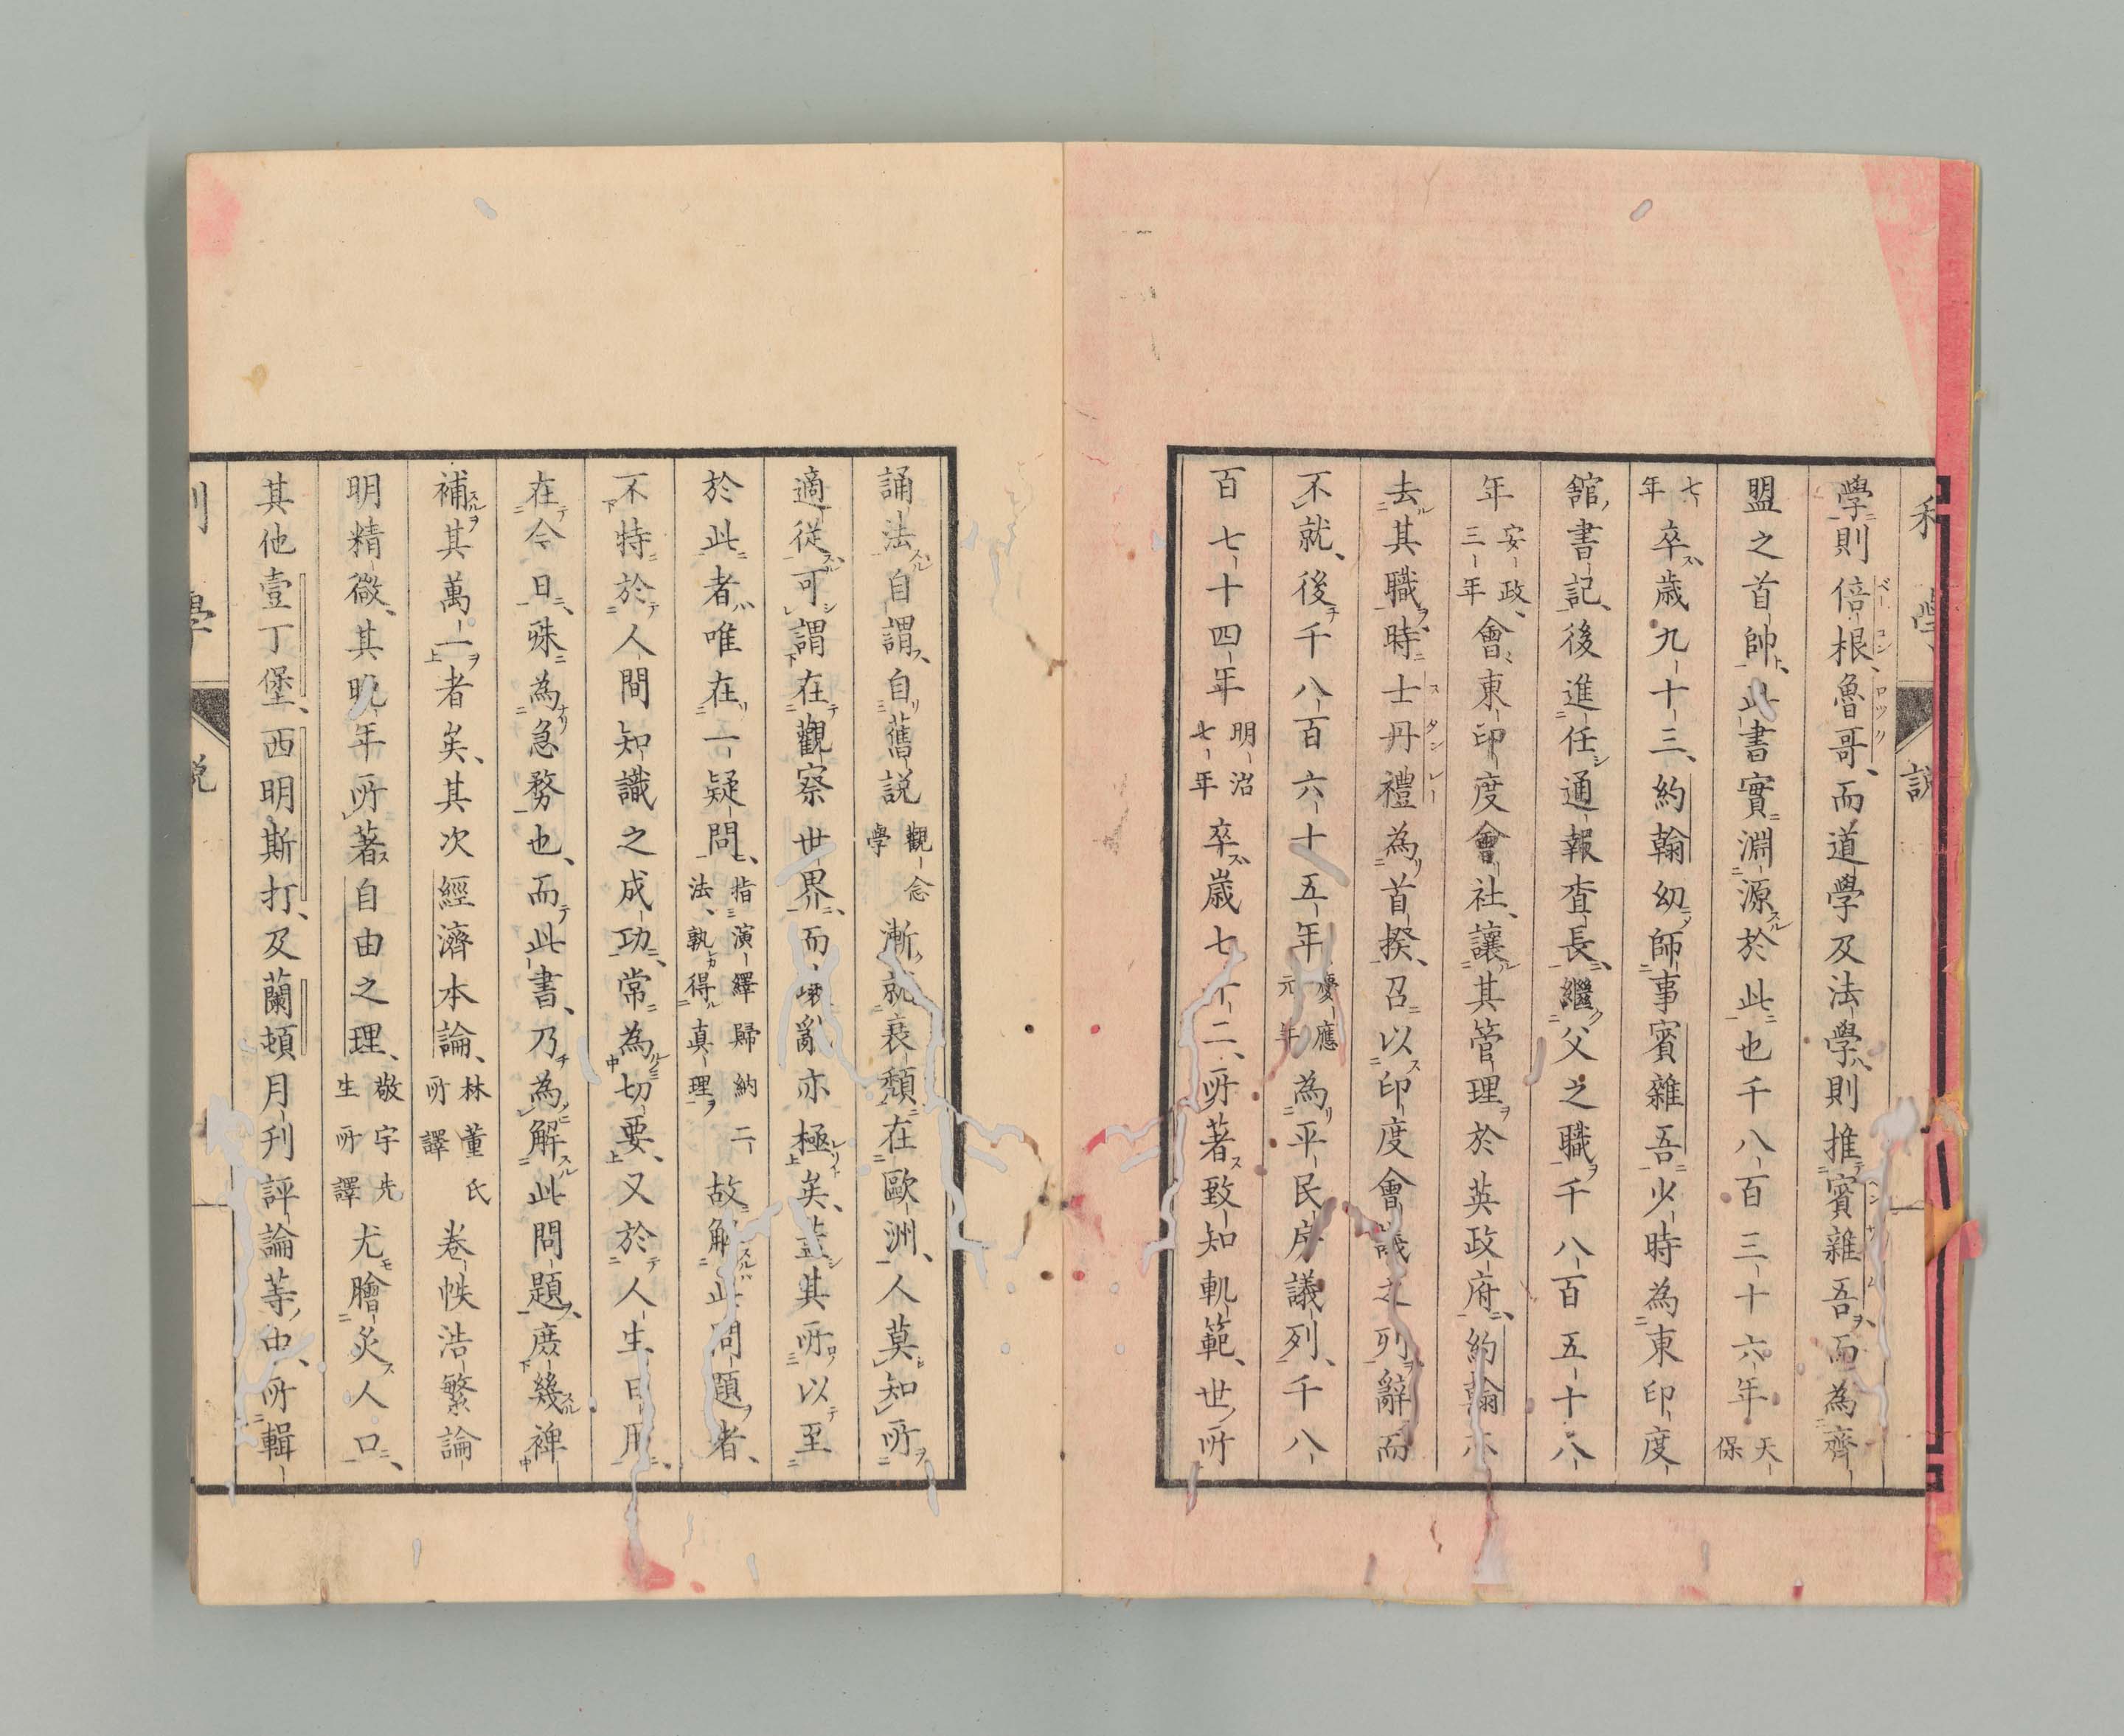 學則倍根魯哥、而道學及法學、則推賓雜吾、而為齊
盟之首帥、此書實淵源於此也千八百三十六年天保
七年卒、歲九十三、約翰幼師事賓雜吾少時為東印度
舘書記、後進任通報査長、繼父之職千八百五十八
年安政三年會東印度會社、讓其管理於英政府、約翰亦
去其職、時士丹禮為首揆、召以印度會議之列辭而
不就、後千八百六十五年慶應元年為平民房議列、千八
百七十四年明治七年卒歲七十二、所著致知軌範、世所
誦法自謂、自舊説觀念學漸就衰頽在歐洲、人莫知所
適從、可謂在觀察世界、而壞亂亦極矣、蓋其所以至
於此者唯在一疑問、指演繹歸納二法、孰得真理故解此問題者、
不特於人間知識之成功、常為切要、又於人生日用、
在今日、殊為急務也、而此書、乃為解此問題、庶幾裨
補其萬一者矣、其次經濟本論、林董氏所譯卷帙浩繁論
明精微、其晩年所著自由之理、敬宇先生所譯尤膾炙人口、
其他壹丁堡、西明斯打、及蘭頓月刋評論等、中、所輯